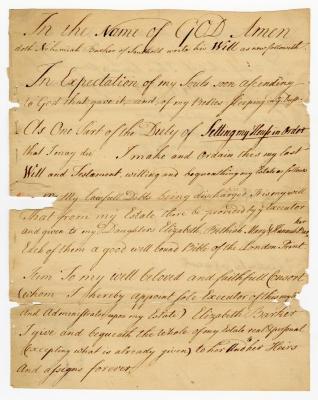 In the Name of GOD Amen
doth Nehemiah Barker of Southold write his Will as now followeth
In Expectation of my Souls soon ascending
to God that gave it, and of my Bodies sleeping in
As One Part of the Duty of Setting my House in Order
that I may die I make and Ordain this my last
Will and Testament, willing and bequeathing my Estate as follows
My lawfull Debts being discharged It is my will
That from my Estate there be provided by Executor
and given to my Daughters Elizabeth Bethiah Mary & Hannah
Each of them a good well bound Bible of the London Print
Item To my well beloved and faithfull Consort
(whom I hereby appoint sole Executor of this my
And Administrator upon my Estate) Elizabeth Barker
I give and bequeath the Whole of my Estate real & personal
(excepting what is already given) to her And her Heirs
And assigns forever